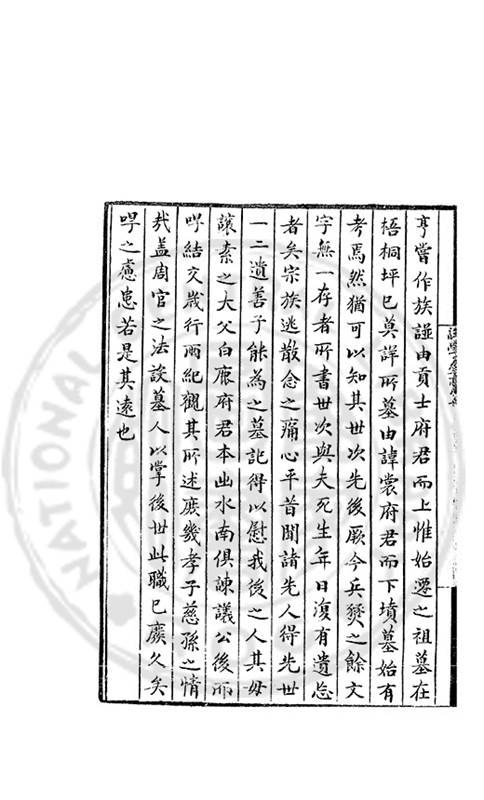 亨嘗作族譜由貢士府君而上惟始遷之祖墓在
梧桐坪已莫詳所墓由諱裳府君而下墳墓始有
考焉然猶可以知其世次先後厥今兵燹之餘文
字無一存者所書世次與夫死生年日復有遺忘
者矣宗族逃散念之痛心平昔聞諸先人得先世
一二遺善子能為之墓記得以慰我後之人其毋
讓素之大父白鹿府君本出水南俱諫議公後而
㕦結交歲行兩紀觀其所述庶幾孝子慈孫之情
哉盖周官之法設墓人以掌後世此職已廢久矣
㕦之慮患若是其遠也
NATIONAL